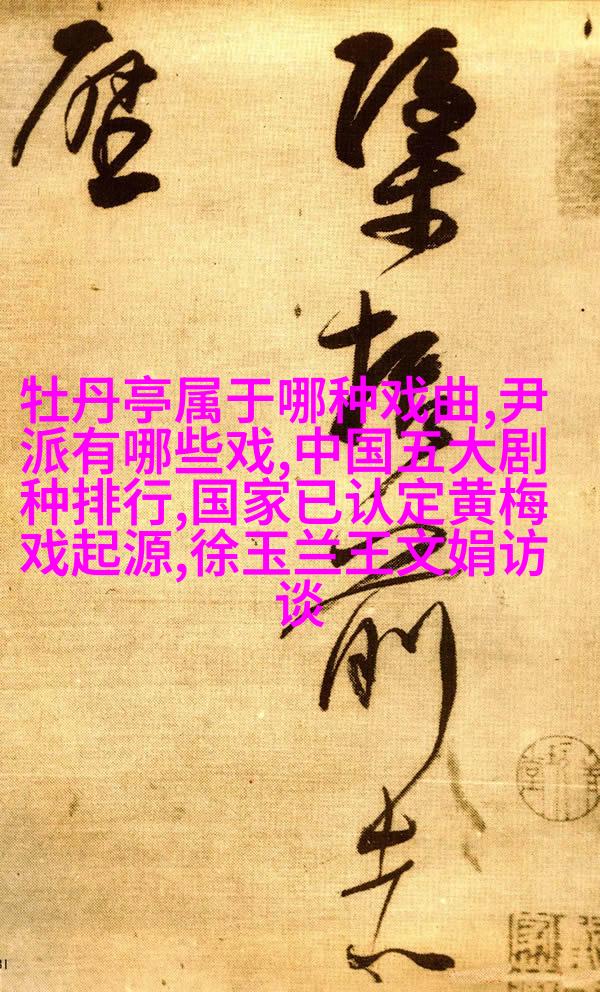 牡丹亭属于哪种戏曲,尹
派有哪些戏,中国五大剧
种排行,国家已认定黄梅
戏起源,徐玉兰王文娟访
谈
前志